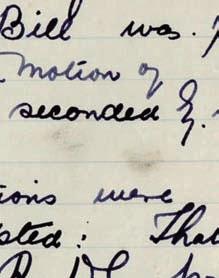 Bill was
Motion of
seconded
ions were
sted: That